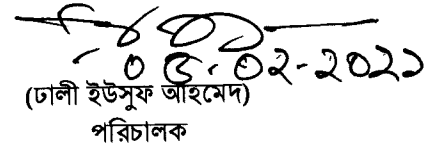 ০৪-০২-২০২১
(ঢালী ইউসুফ আহমেদ)
পরিচালক